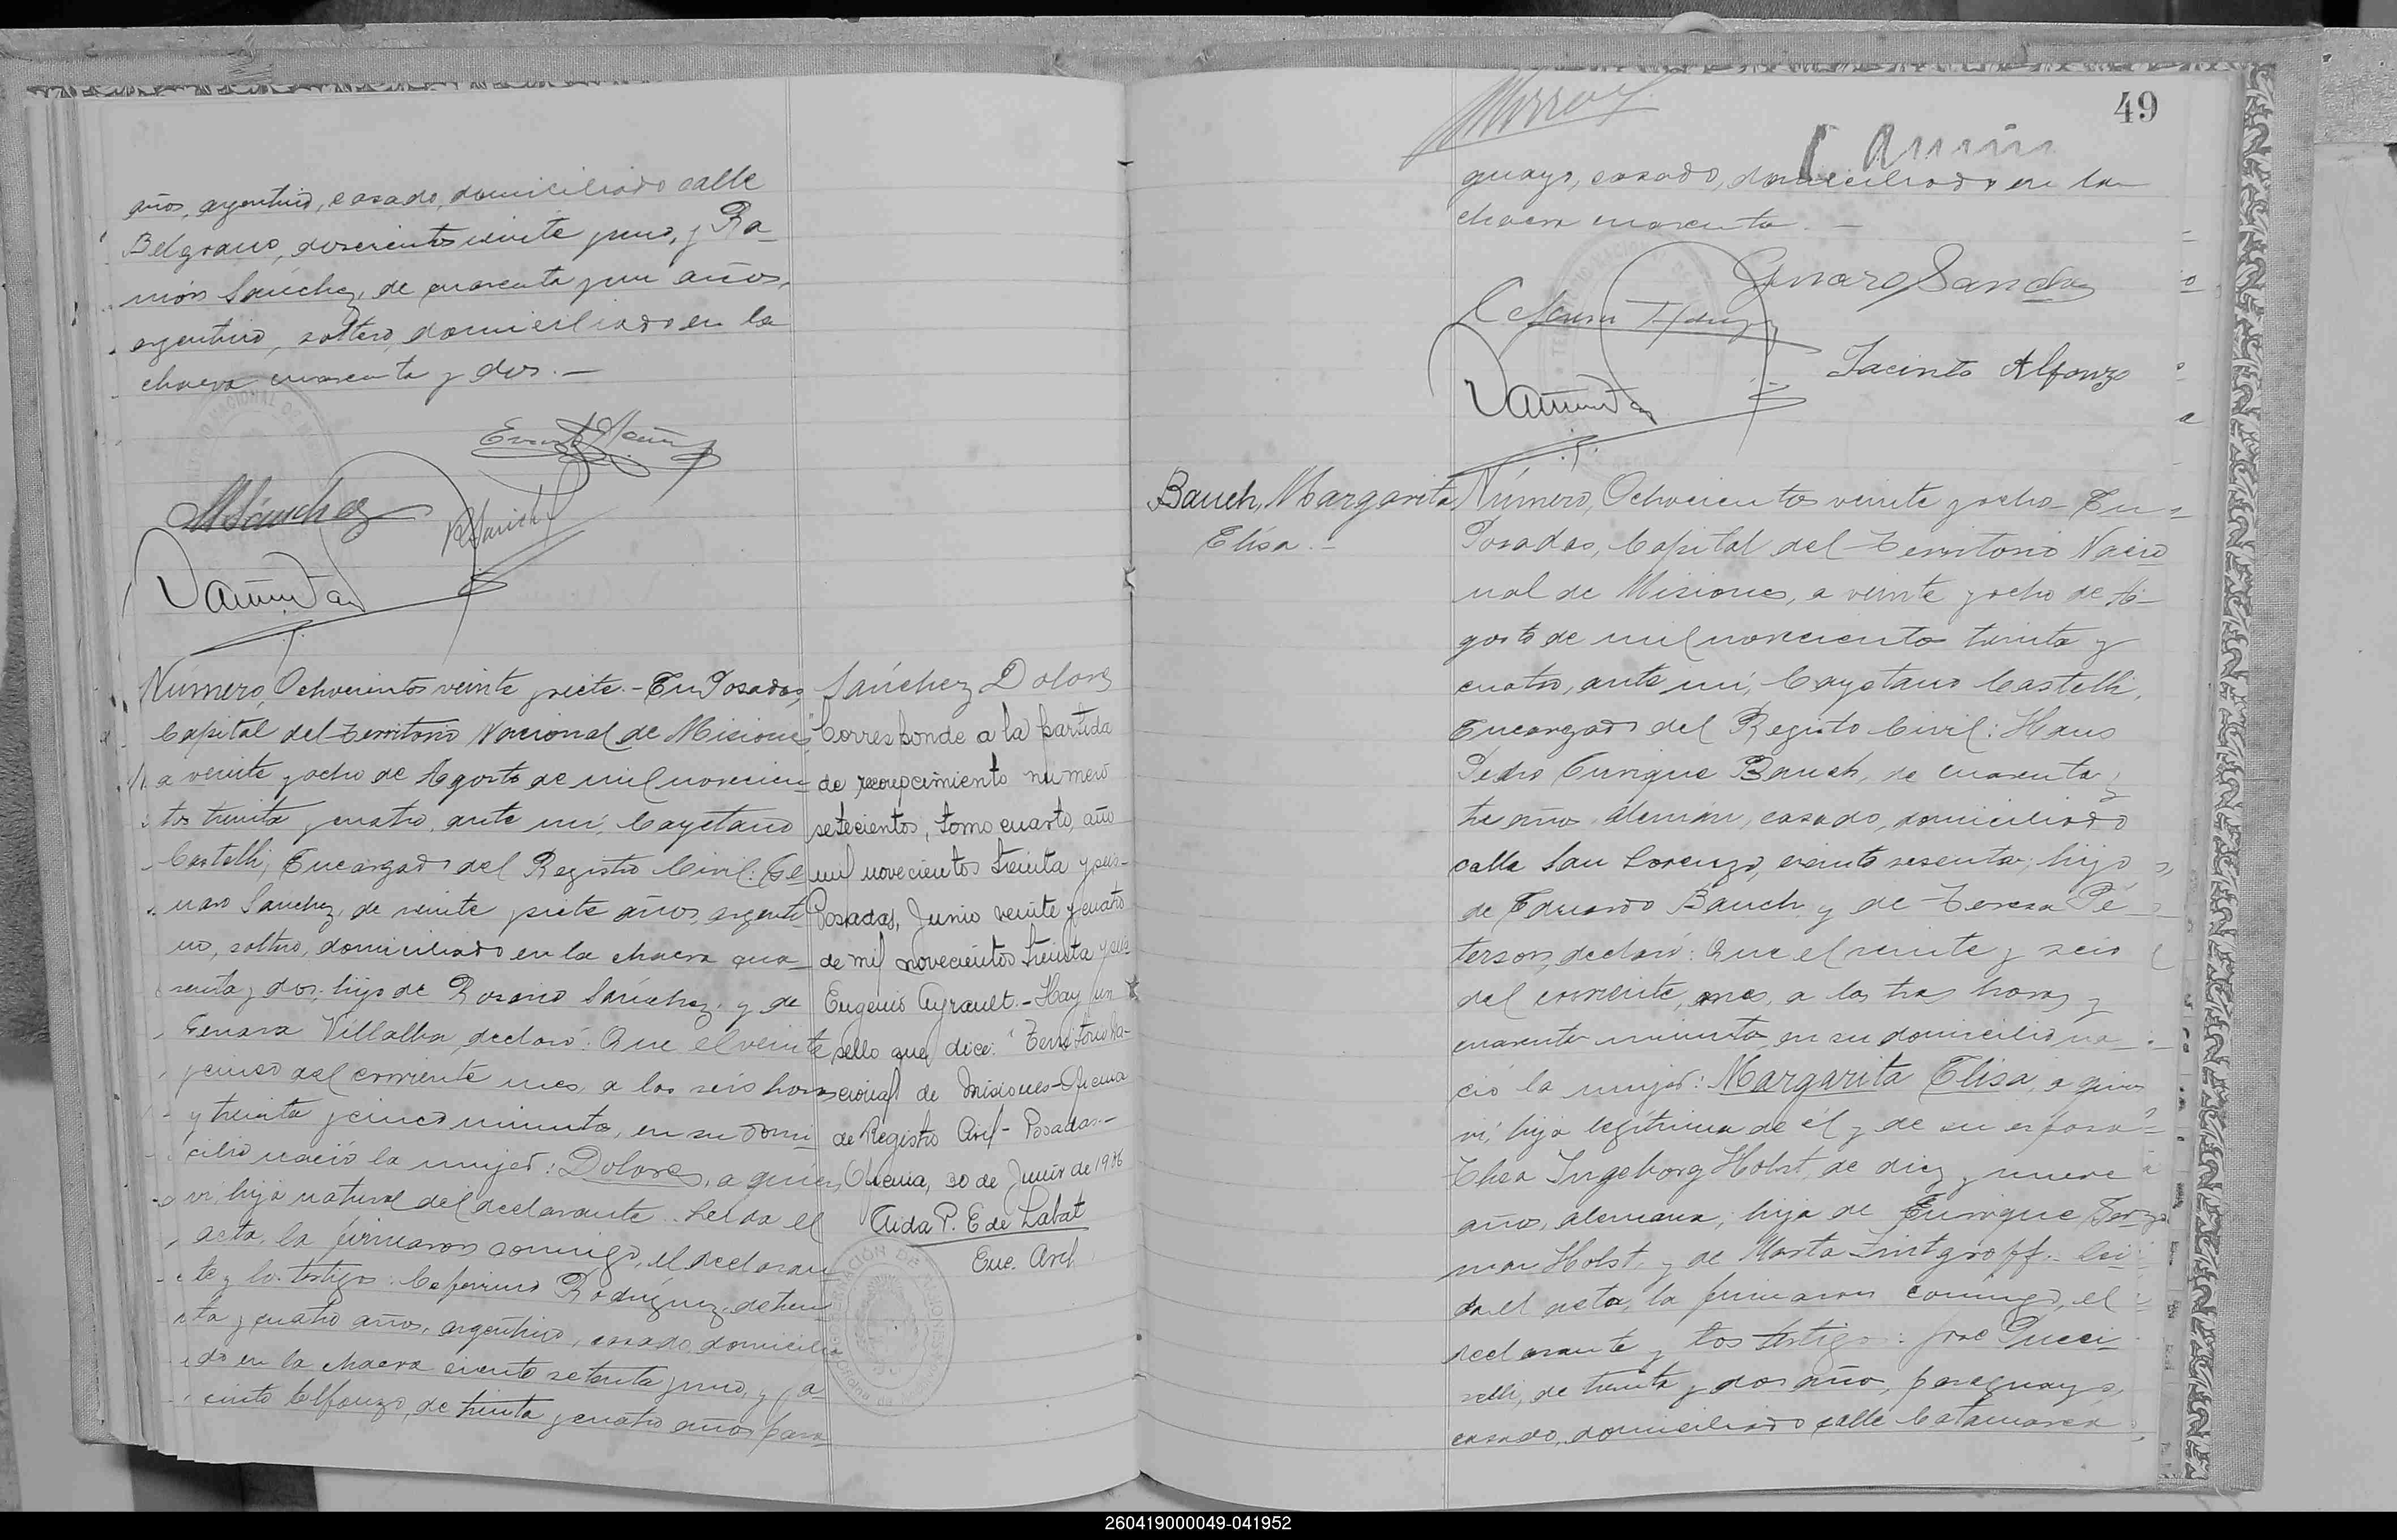 años, argentino, casado, domiciliado calle
Belgrano, doscientos veinte y uno, y Ra-
món Sánchez, de cuarenta y un años,
argentino, soltero, domiciliado en la
chacra cuarenta y dos.-
MSánchez
Número, Ochocientos veinte y siete.- En Posadas,
Capital del Territorio Nacional de Misiones,
a veinte y ocho de Agosto de mil novecien-
tos treinta y cuatro, ante mí, Cayetano
Castelli, Encargado del Registro Civil: Ge-
naro Sánchez, de veinte y siete años, argenti-
no, soltero, domiciliado en la chacra cua-
renta y dos, hijo de Rosario Sánchez, y de
Genara Villalba, declaró: Que el veinte
y cinco del corriente mes, a las seis horas
y treinta y cinco minutos, en su domi-
cilio nació la mujer: Dolores, a quien
vi, hija natural del declarante. Leida el
acta, la firmaron conmigo, el declaran-
te y los testigos: Ceferino Rodríguez, de trein-
ta y cuatro años, argentino, casado, domicilia-
do en la chacra ciento setenta y uno, y Ja-
cinto Alfonzo, de treinta y cuatro años, para-
Sánchez Dolores
"Corresponde a la partida
de reconocimiento número
setecientos, tomo cuarto, año
mil novecientos treinta y seis-
Posadas, Junio veinte y cuatro
de mil novecientos treinta y seis
Eugenio Ayrault.- Hay un
sello que dice: "Territorio Na-
cional de Misiones-Oficina
de Registro Civil- Posadas.-
Oficina, 30 de Junio de 1936
Aida P. E de Labat
Enc. Arch.
49
guayo, casado, domiciliado en la
chacra cuarenta.-
Genaro Sanchez
Jacinto Alfonzo
Bauch, Margarita
Elisa.-
Número, Ochocientos veinte y ocho- En
Posadas, Capital del Territorio Nacio
nal de Misiones, a veinte y ocho de A-
gosto de mil novecientos treinta y
cuatro, ante mí, Cayetano Castelli,
Encargado del Registro Civil: Hans
Pedro Enrique Bauch, de cuarenta y
tres años, alemán, casado, domiciliado
calle San Lorenzo, ciento sesenta; hijo
de Eduardo Bauch y de Teresa Pe-
terson, declaró: Que el veinte y seis
del corriente, mes, a las tres horas y
cuarenta minutos, en su domicilio na-
ció la mujer: Margarita Elisa, a quien
vi, hija legítima de él y de su esposa
Thea Ingeborg Holst, de diez y nueve
años, alemana; hija de Enrique
Holst, y de Marta Lei-
da el acta, la firmaron conmigo, el
declarante y los testigos: José Pucci-
relli, de treinta y dos años, paraguayo,
casado, domiciliado calle Catamarca
260419000049-041952